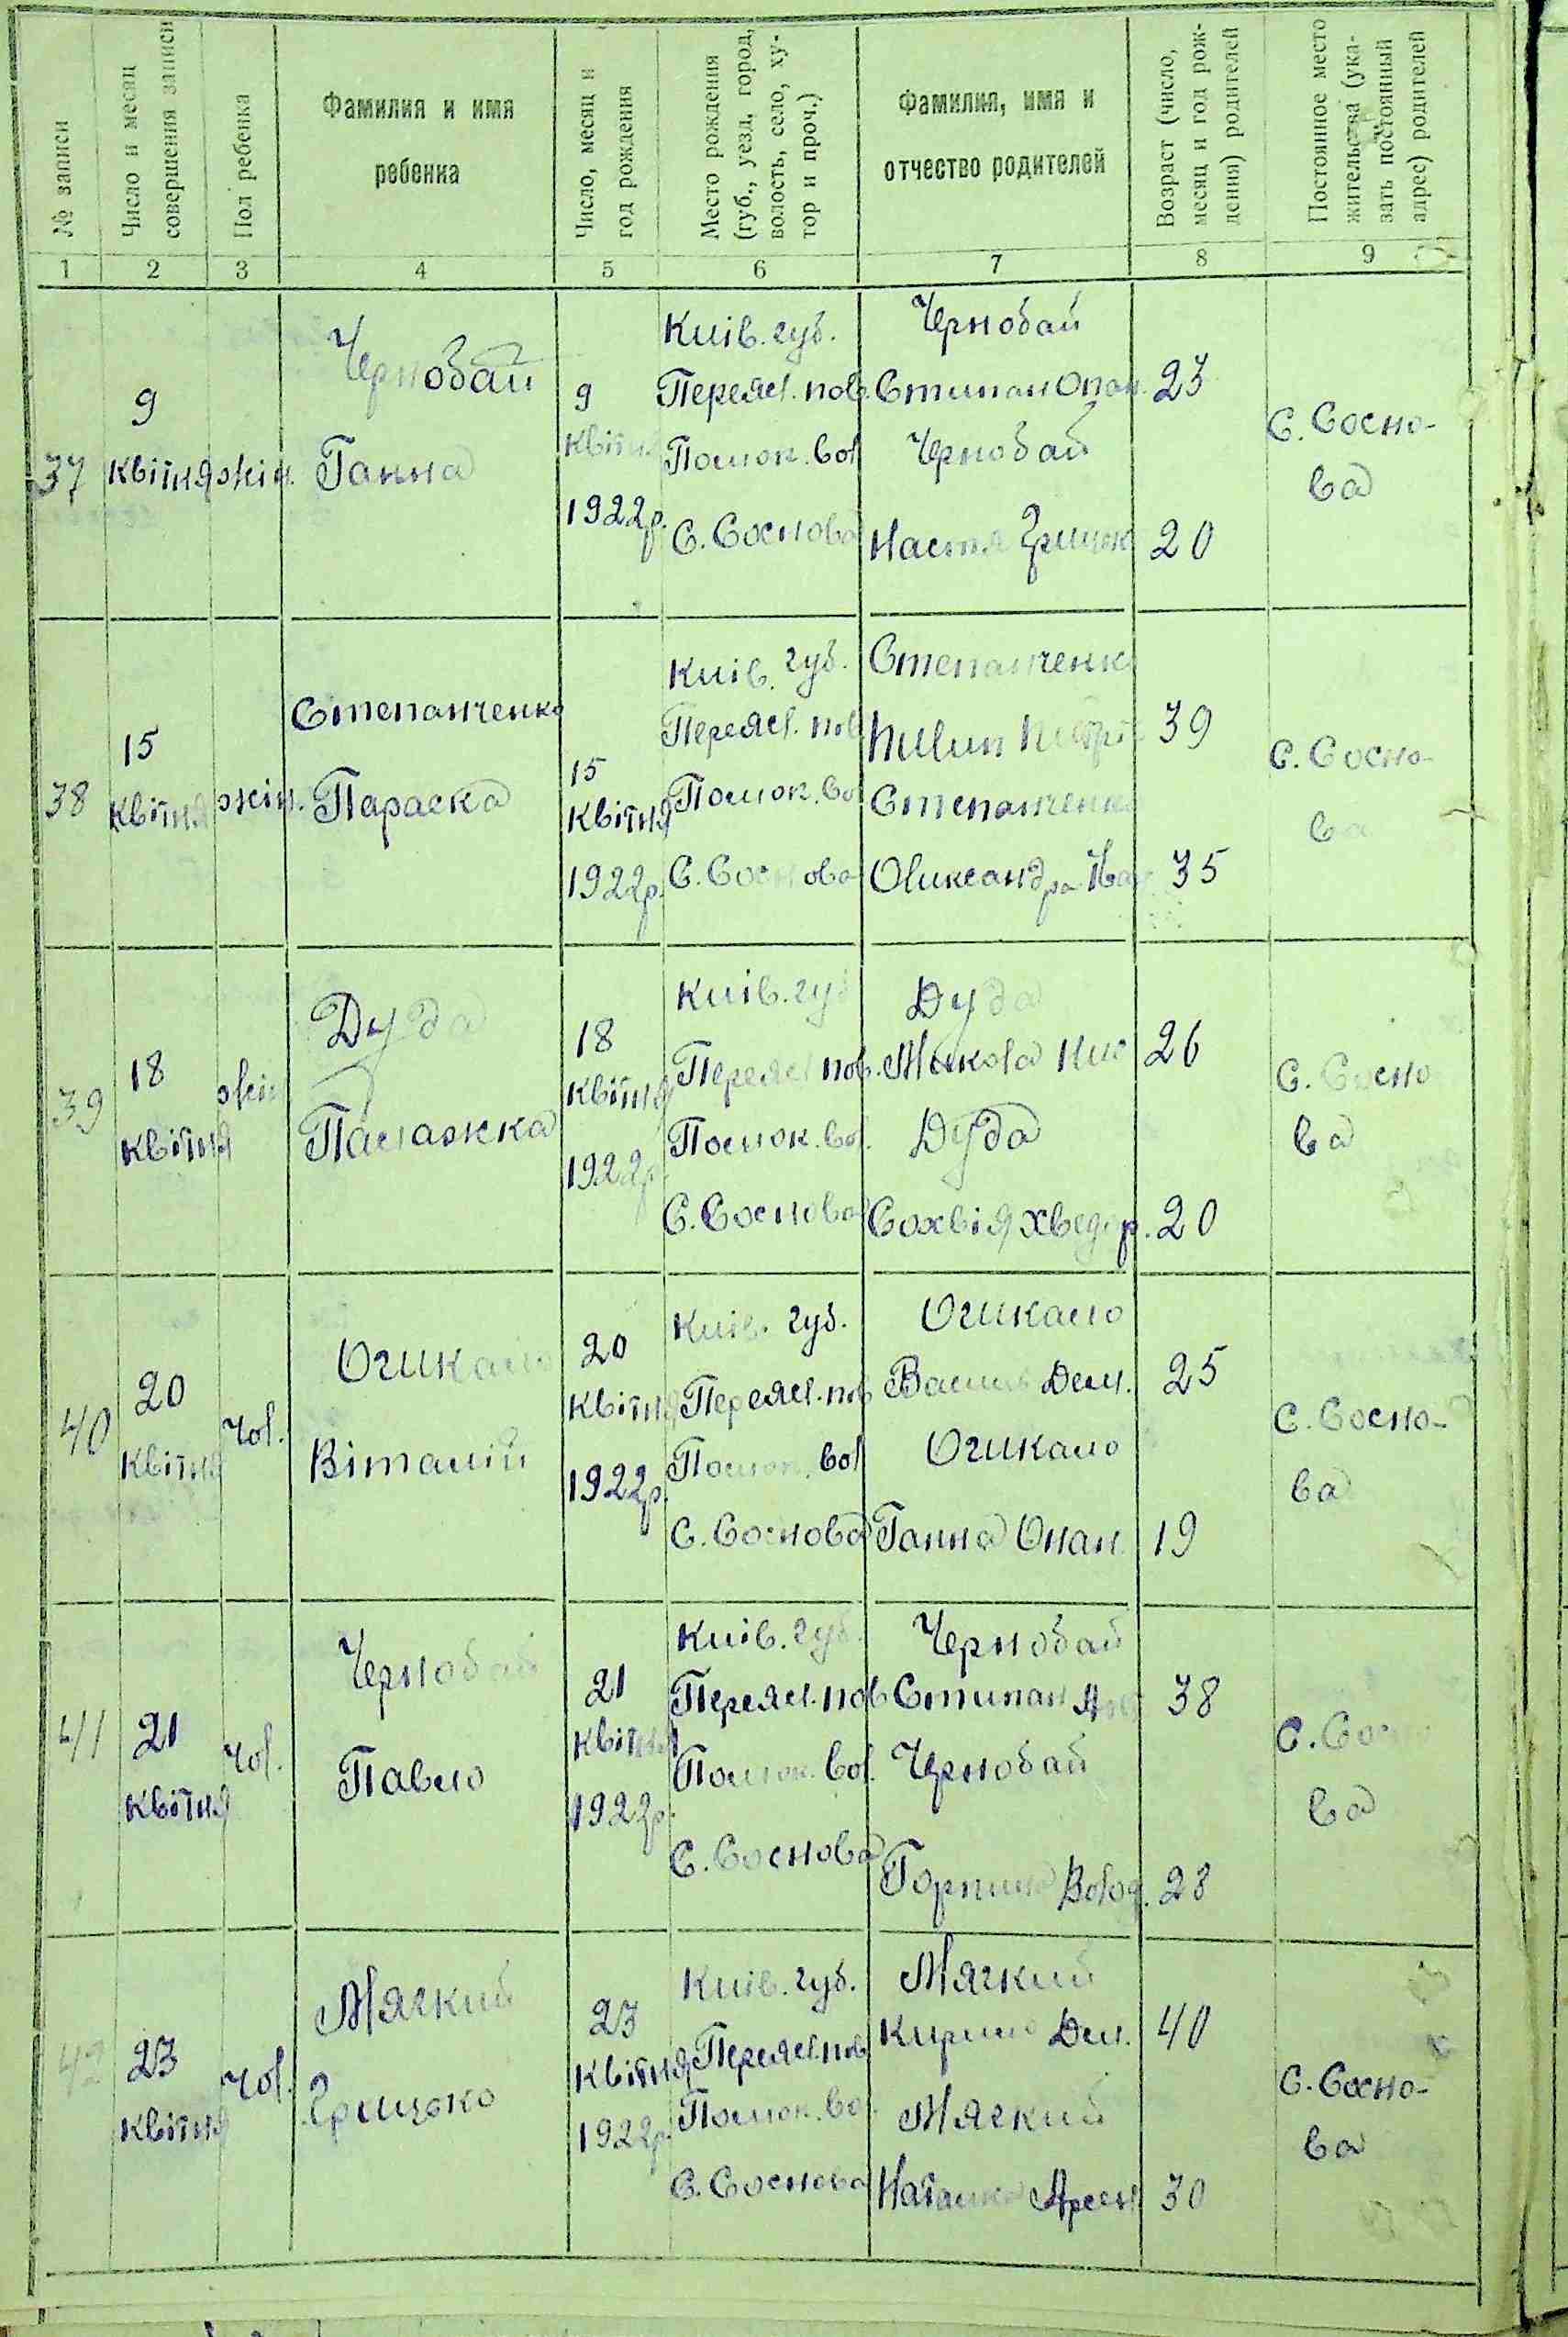 № записи
Число и месяц
совершения записи
Пол ребенка
Фамилия и имя
ребенка
Число, месяц и
год рождения
Место рождения
(губ., уезд, город,
волость, село, ху-
тор и проч.)
Фамилия, имя и
отчество родителей
Возраст (число,
месяц и год рож-
дения) родителей
Постоянное место
жительства (ука-
зать постоянный
адрес) родителей
1 2 3 4 5 6 7 8 9
37
9
квітня
жін.
Чернобай
Ганна
9
квітня
1922р.
Київ. губ.
Переясл. пов.
Помок. вол
С. Соснова
Чернобай
Степан Опан.
Чернобай
Настя Грицьк
23
20
С. Сосно-
ва
38
15
квітня
жін.
Степанченко
Параска
15
квітня
1922р.
Київ. губ.
Переясл. пов
Помок. вол
С. Соснова
Степанченко
Пилип
Степанченко
Олександра
39
35
С. Сосно-
ва
39
18
квітня
жін
Дуда
Палажка
18
квітня
1922р.
Київ. губ
Переясл пов.
Помок. вол.
С. Соснова
Дуда
Микола
Дуда
Сохвія Хведор.
26
20
С. Сосно
ва
40
20
квітня
чол.
Очикало
Віталій
20
квітня
1922р.
Київ. губ.
Переясл. пов
Помок. вол
С. Соснова
Очикало
Василь Дем.
Очикало
Ганна Опан.
25
19
С. Сосно-
ва
41
21
квітня
чол.
Чернобай
Павло
21
квітня
1922р.
Київ. губ.
Переясл. пов
Помок. вол.
С. Соснова
Чернобай
Степан
Чернобай
Горпина Волод.
38
23
С. Сосно
ва
42
23
квітня
чол.
Мягкий
Грицько
23
квітня
1922р.
Київ. губ.
Переясл. пов
Помок. вол.
С. Соснова
Мягкий
Кирило Дем.
Мягкий
Наталка Арсен
40
30
С. Сосно-
ва